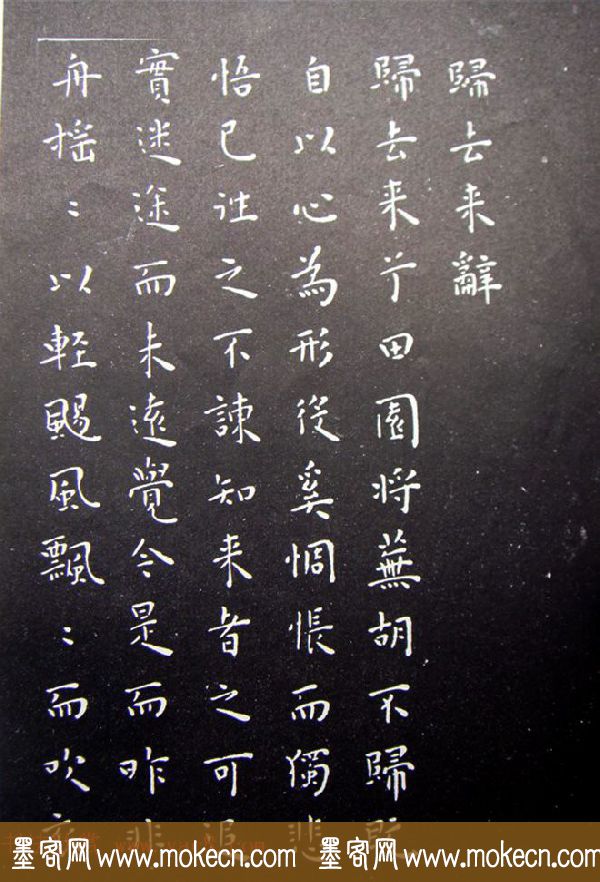 歸去来辭
歸去来兮田園将蕪胡不歸既
自以心為形役奚惆悵而獨悲
悟已往之不諫知来者之可追
實迷途而未遠覺今是而昨非
舟揺〻以軽颺風飄〻而吹衣
墨客网 www.mokecn.com 墨客网 www.mokecn.com